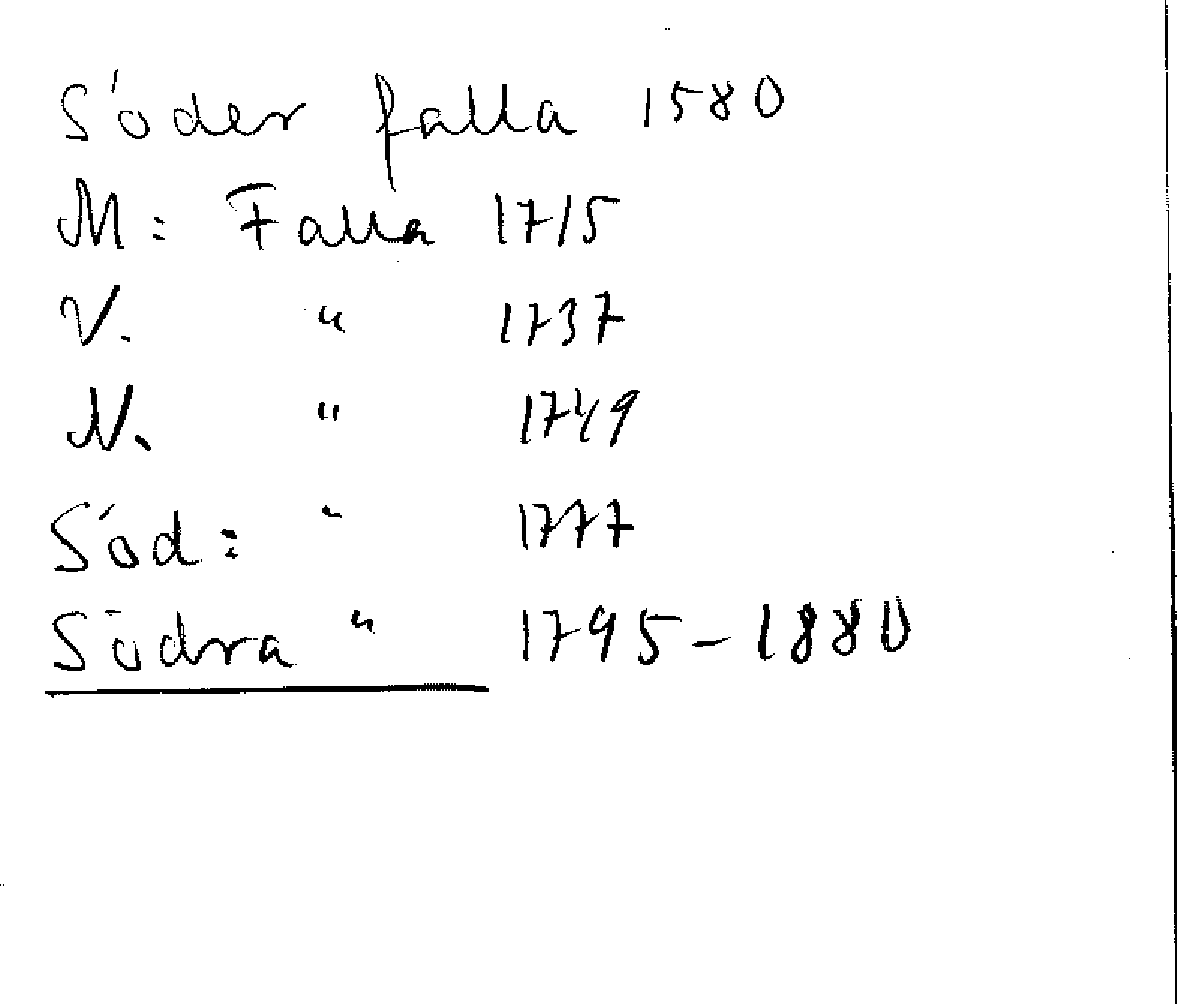 Söder falla 1580
M: Falla 1715
V. " 1737
N. " 1749
Söd: " 1777
Södra " 1795-1880